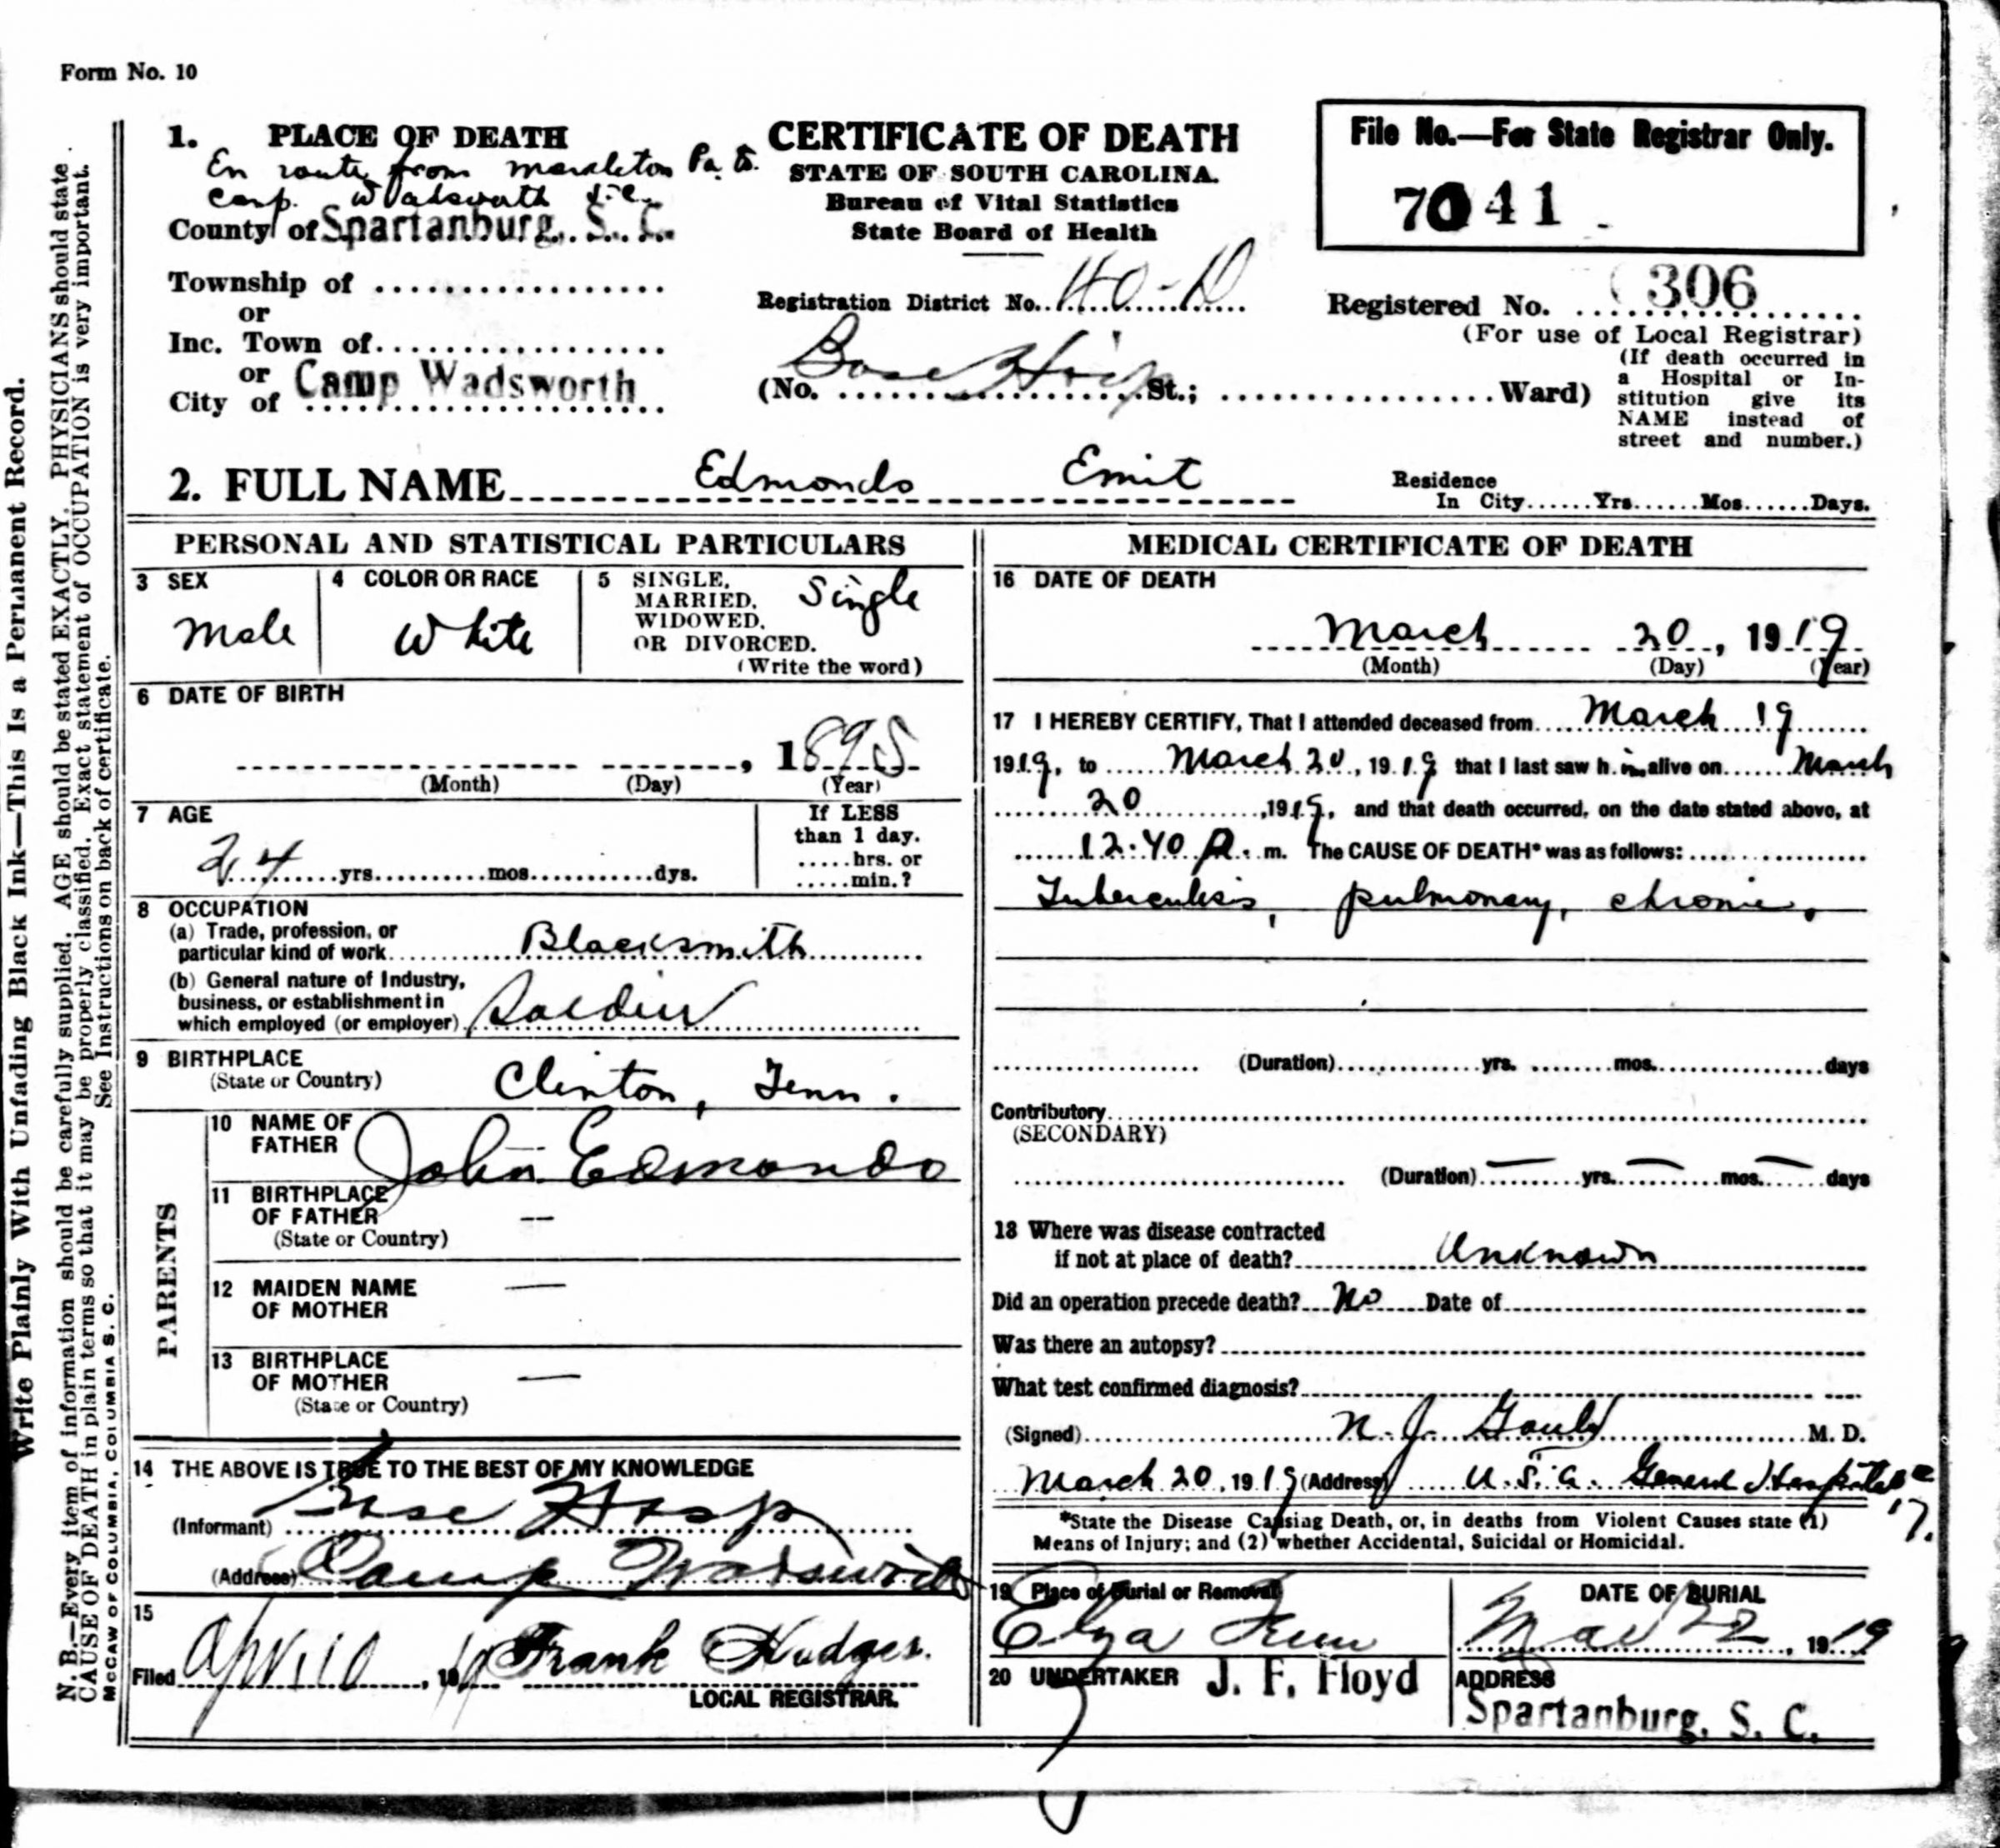 Form No. 10
1. PLACE OF DEATH
En route from Markleton Pa. to
Camp Wadsworth S.C.
County of Spartanburg, S. C.
Township of
or
Inc. Town of
or
City of Camp Wadsworth
CERTIFICATE OF DEATH
STATE OF SOUTH CAROLINA.
Bureau of Vital Statistics
State Board of Health
Registration District No. 40-D
(No. Base Hosp St.; Ward)
File No.—For State Registrar Only.
7041
Registered No. 306
(For use of Local Registrar)
(If death occurred in
a Hospital or In-
stitution give its
NAME instead of
street and number.)
2. FULL NAME Edmonds Emit
Residence
In City......Yrs......Mos......Days.
PERSONAL AND STATISTICAL PARTICULARS
3 SEX
Male
4 COLOR OR RACE
White
5 SINGLE,
MARRIED,
WIDOWED,
OR DIVORCED.
(Write the word)
Single
6 DATE OF BIRTH
, 1895
(Month) (Day) (Year)
7 AGE
24 yrs. mos. dys.
If LESS
than 1 day.
.....hrs. or
.....min.?
8 OCCUPATION
(a) Trade, profession, or
particular kind of work Blacksmith
(b) General nature of Industry,
business, or establishment in
which employed (or employer) Soldier
9 BIRTHPLACE
(State or Country) Clinton, Tenn.
PARENTS
10 NAME OF
FATHER John Edmonds
11 BIRTHPLACE
OF FATHER —
(State or Country)
12 MAIDEN NAME —
OF MOTHER
13 BIRTHPLACE
OF MOTHER —
(State or Country)
14 THE ABOVE IS TRUE TO THE BEST OF MY KNOWLEDGE
(Informant) Base Hosp
(Address) Camp Wadsworth
15
Filed Apr. 10, 1919 Frank Hodges.
LOCAL REGISTRAR.
MEDICAL CERTIFICATE OF DEATH
16 DATE OF DEATH
March 20, 1919
(Month) (Day) (Year)
17 I HEREBY CERTIFY, That I attended deceased from March 19
1919, to March 20, 1919 that I last saw h.im alive on March
20, 1919, and that death occurred, on the date stated above, at
12.40 P. m. The CAUSE OF DEATH* was as follows:
Tuberculosis, pulmonary, chronic.
(Duration) yrs. mos. days
Contributory
(SECONDARY)
(Duration) — yrs. — mos. — days
18 Where was disease contracted
if not at place of death? Unknown
Did an operation precede death? No Date of
Was there an autopsy?
What test confirmed diagnosis?
(Signed) N. J. Gould M. D.
March 20, 1919 (Address) U. S. A. General Hospital
17.
*State the Disease Causing Death, or, in deaths from Violent Causes state (1)
Means of Injury; and (2) whether Accidental, Suicidal or Homicidal.
19 Place of Burial or Removal
Elza Tenn
DATE OF BURIAL
Mar 22, 1919
20 UNDERTAKER J. F. Floyd
ADDRESS
Spartanburg, S. C.
Write Plainly With Unfading Black Ink—This Is a Permanent Record.
N. B.—Every item of information should be carefully supplied. AGE should be stated EXACTLY. PHYSICIANS should state
CAUSE OF DEATH in plain terms so that it may be properly classified. Exact statement of OCCUPATION is very important.
See Instructions on back of certificate.
McCAW OF COLUMBIA, COLUMBIA S. C.